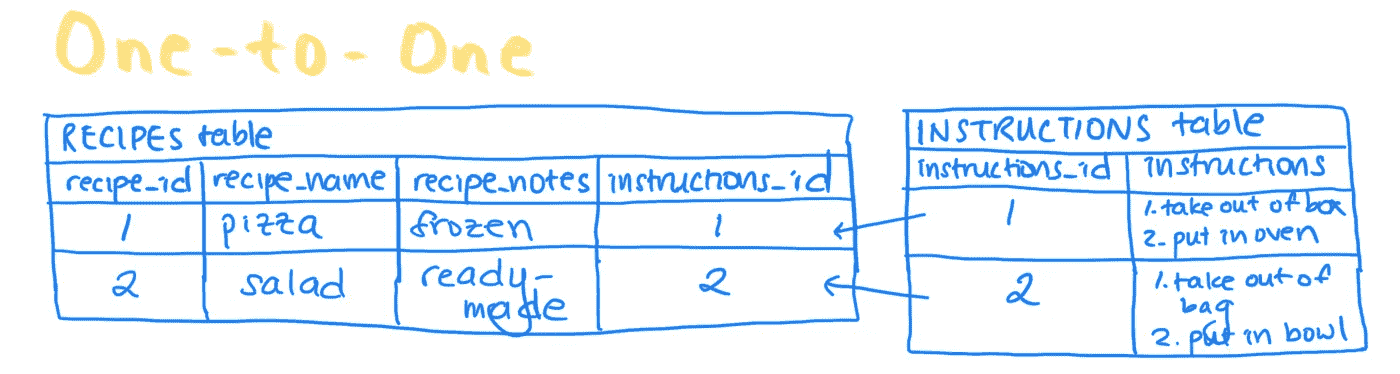 One-to-One
RECIPES table
recipe_id recipe_name recipe_notes instructions_id
1 pizza frozen 1
2 salad ready-
made 2
INSTRUCTIONS table
instructions_id instructions
1 1. take out of box
2. put in oven
2 1. take out of
bag
2. put in bowl